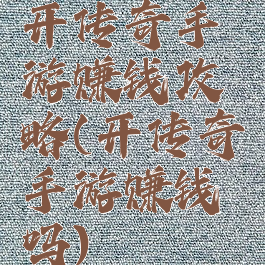 开传奇手
游赚钱攻
略(开传奇
手游赚钱
吗)